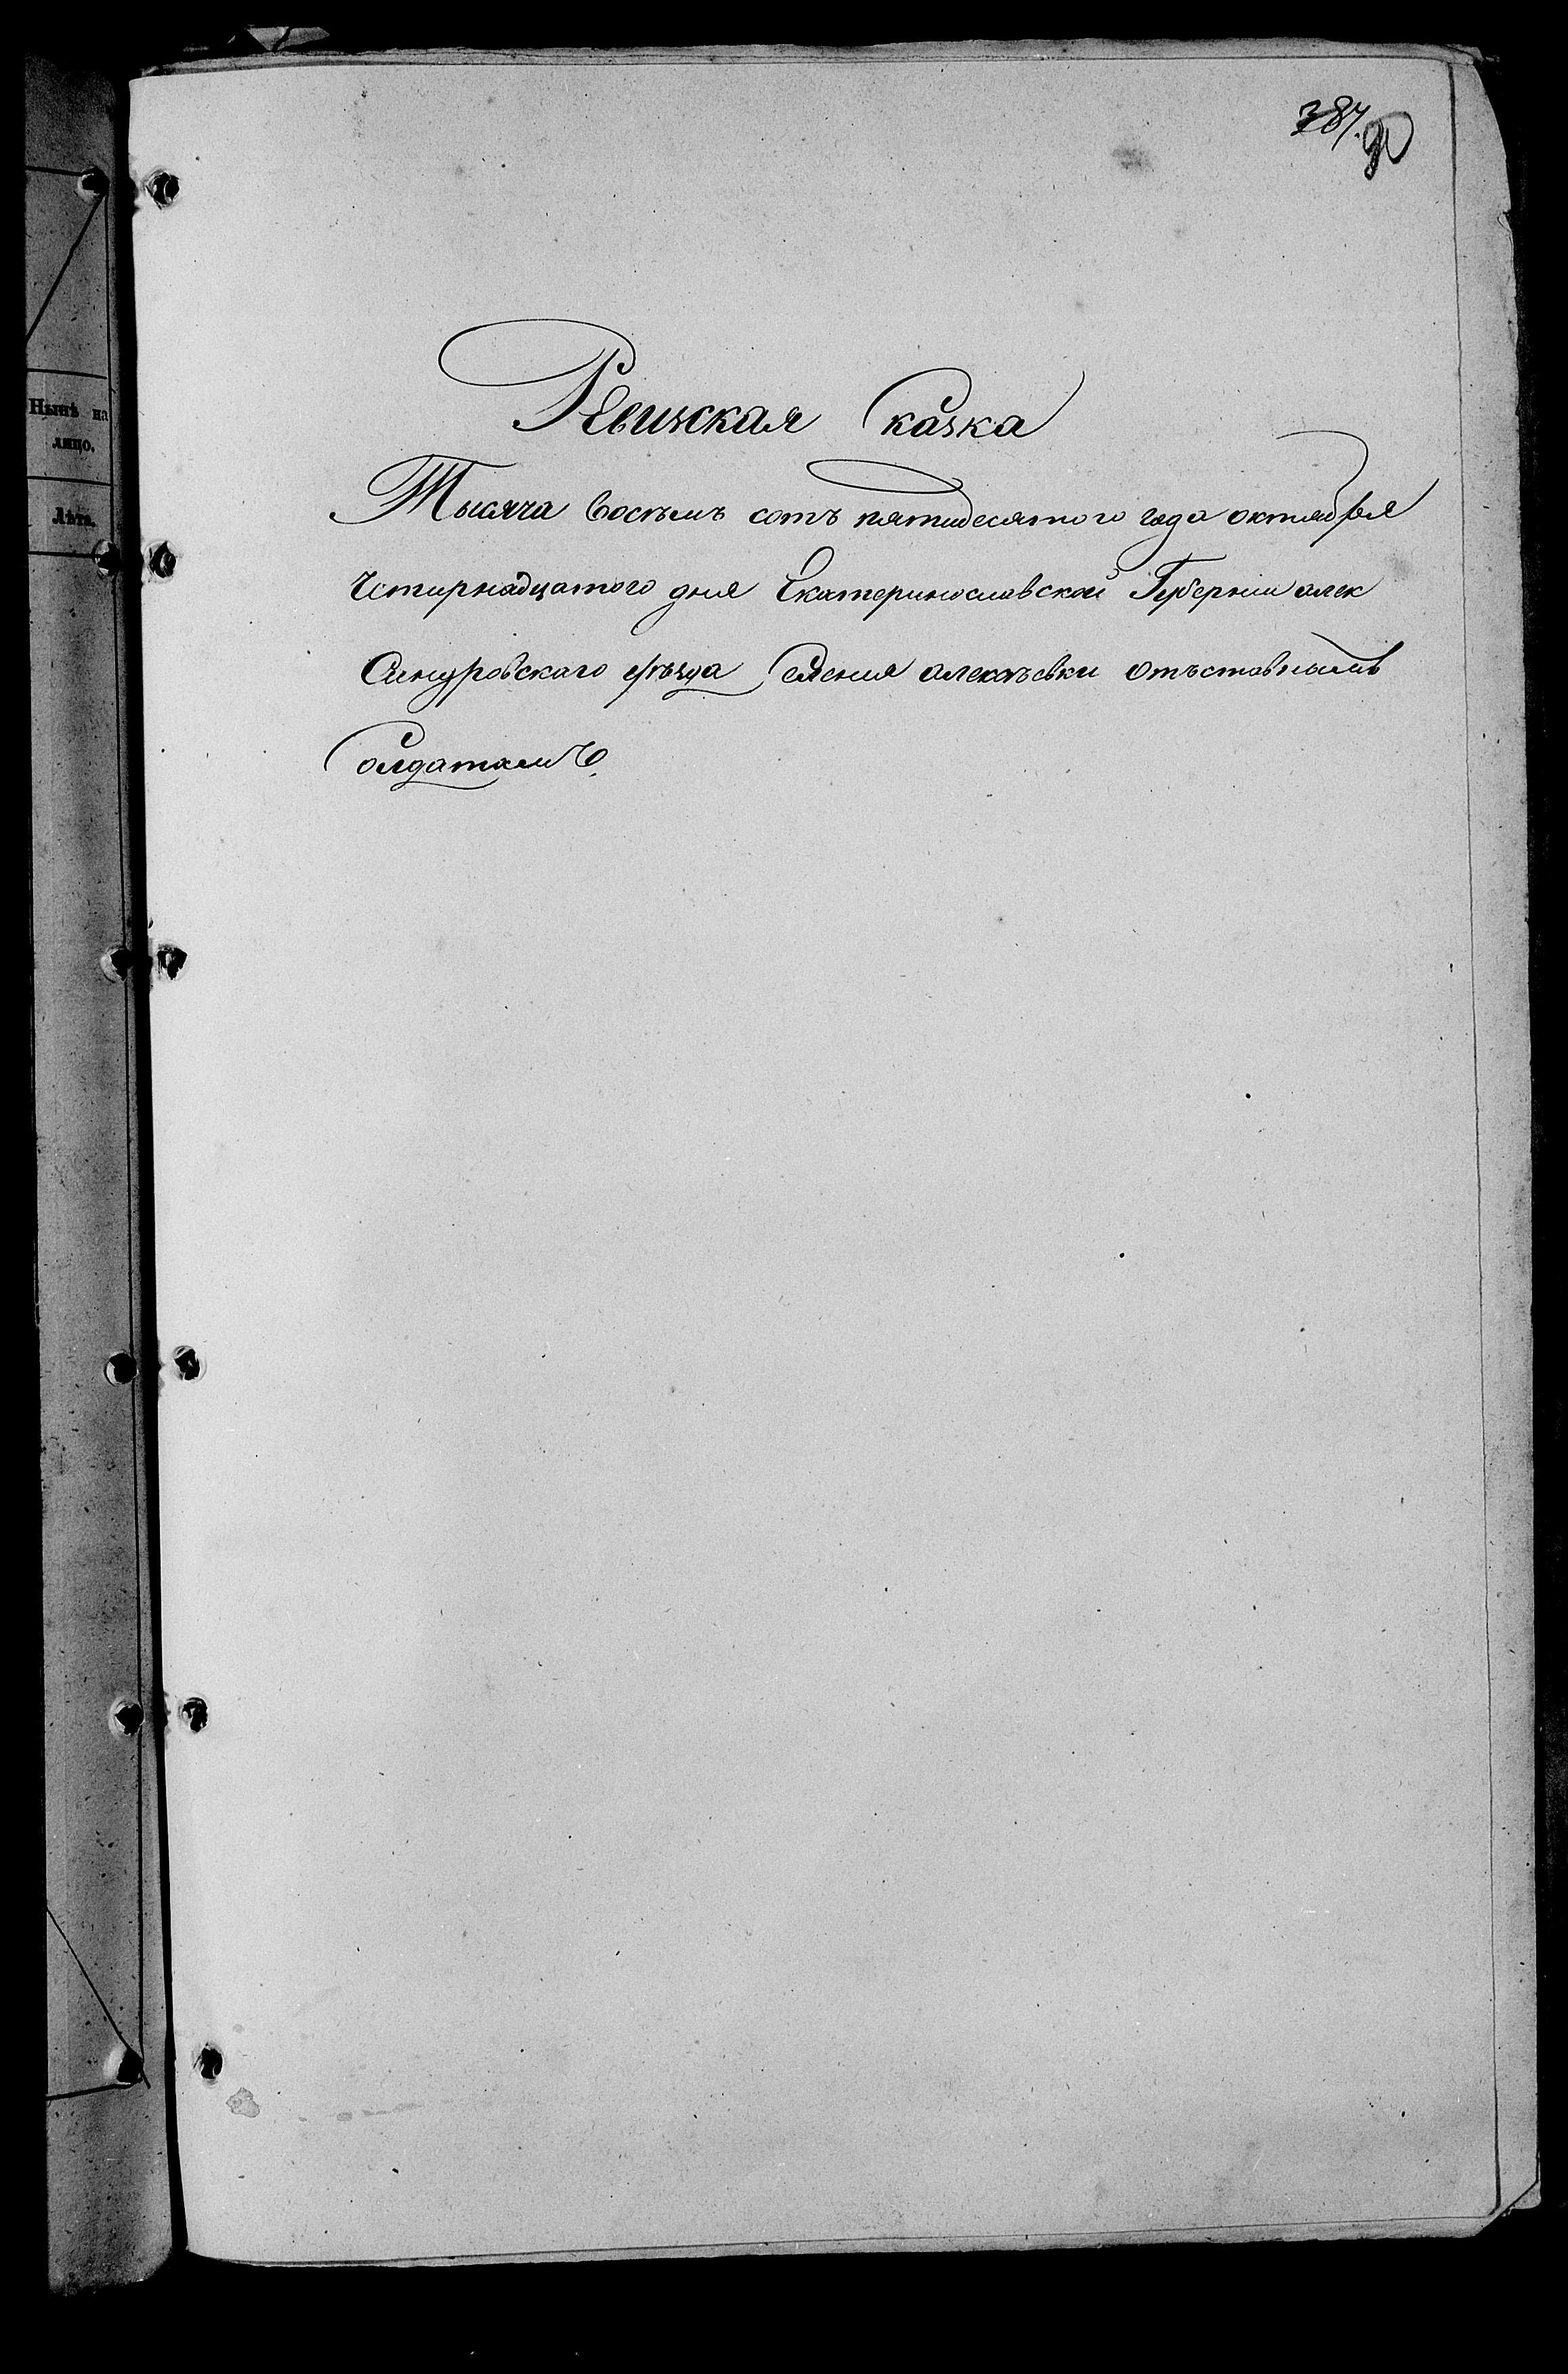 387.
90
Нынѣ на
лицо.
Лѣта.
Ревизская Сказка
Тысяча Восемъ сотъ пятидесятого года октября
Четирнадцатого дня Екатеринославской Губернии алек
Сандровскаго уѣзда Селения алексѣевки отъставнымъ
Солдатамъ